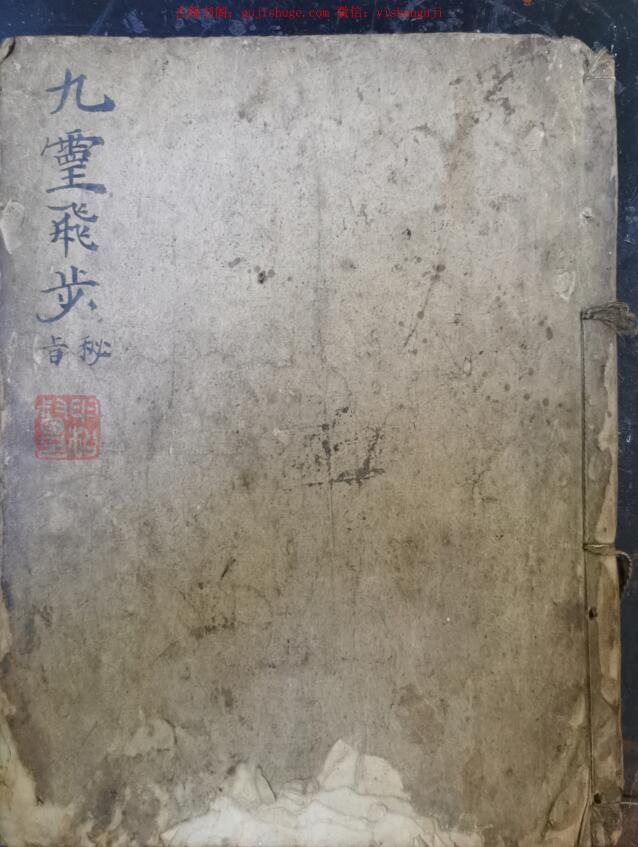 古籍书阁：gujishuge.com 微信：yishenguji
九靈飛步
秘旨